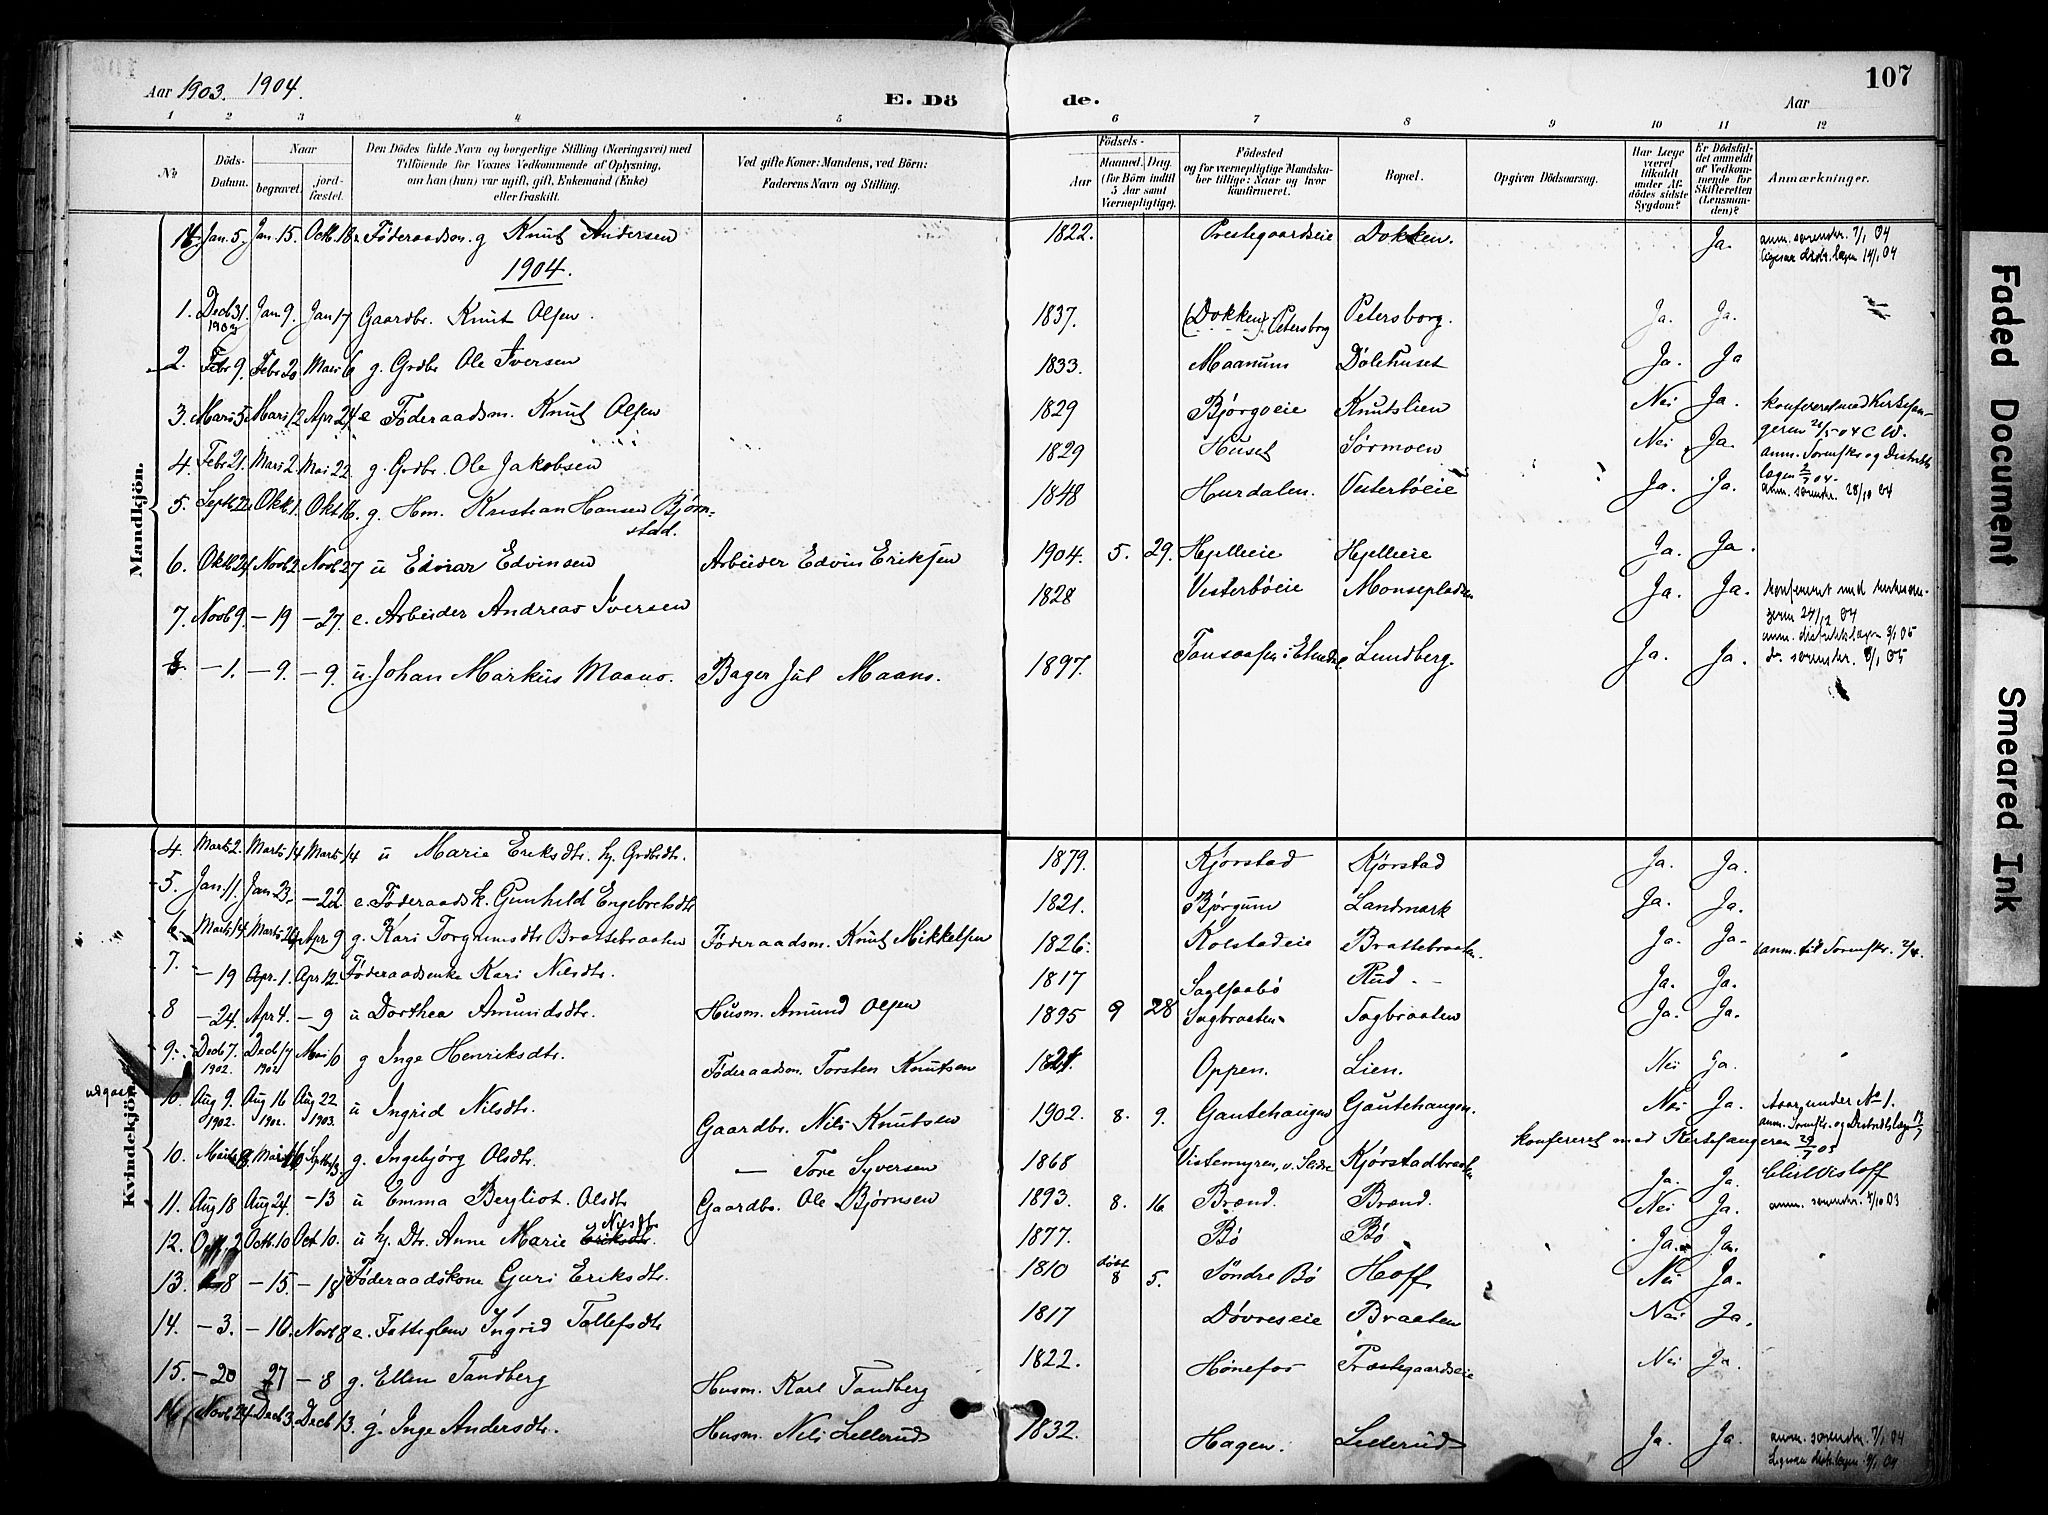 Aar 1903. 1904.
E. Dö de.
Aar
107
1 2 3 4 5 6 7 8 9 10 11 12
No
Döds-Datum.
Naar
begravet.
jord-fæstet.
Den Dödes fulde Navn og borgerlige Stilling (Næringsvei) med
Tilföiende for Voxnes Vedkommende af Oplysning,
om han (hun) var ugift, gift, Enkemand (Enke)
eller fraskilt.
Ved gifte Koner: Mandens, ved Börn:
Faderens Navn og Stilling.
Födsels-
Aar
Maaned. Dag.
(for Börn indtil
5 Aar samt
Værnepligtige).
Födested
og for værnepligtige Mandska-
ber tillige: Naar og hvor
konfirmeret.
Bopæl.
Opgiven Dödsaarsag.
Har Læge
været
tilkaldt
under Af-
dödes sidste
Sygdom?
Er Dödsfal-
det anmeldt
af Vedkom-
mende for
Skifteretten
(Lensman-
den)?
Anmærkninger.
Mandkjön.
14 Jan. 5. Jan. 15. Octb. 18. Föderaadsm. g Knut Andersen 1822. Prestegaardseie Dokken. Ja. anm. sorenskr. 7/1 04
ligesaa distr.lægen 14/1 04
1904.
1. Decb 31. 1903 Jan 9. Jan 17 Gaardbr. Knut Olsen. 1837. (Dokken) Petersborg Petersborg. Ja. Ja.
2. Febr 9. Febr 20 Mars 6 g. Grdbr Ole Iversen 1833. Maanum Dölehuset Ja. Ja
3. Mars 5. Mars 12 Apr 24 e Föderaadsm. Knut Olsen 1829 Bjørgoeie Knutslien Nei Ja. konfereret med Kirkesan-
geren 28/5 04 C W.
4. Febr 21. Mars 2. Mai 22 g. Grdbr. Ole Jakobsen 1829 Huset Sørmoen Nei Ja. anm. Sorenskr og Distrikts
lægen 2/7 04.
5. Septb 22. Oktb. 1. Oktb 16. g. Hm. Kristian Hansen Bjørn-
stad. 1848 Hurdalen. Vesterböeie Ja. Ja. anm. sorenskr. 28/10 04
6. Oktb 24 Novb 2. Novb 27 u Einar Edvinsen Arbeider Edvin Eriksen 1904. 5. 29. Hjelleeie Hjelleeie Ja. Ja.
7. Novb 9. — 19 — 27. e. Arbeider Andreas Iversen 1828 Vesterböeie Monsepladsen Ja. Ja. konfereret med kirkesan-
geren 24/12 04
anm. distriktslægen 3/1 05
do. sorenskr. 3/1 05
8 — 1. — 9. — 9. u. Johan Markus Maano. Bager Jul Maano. 1897. Lundberg. Ja. Ja.
Kvindekjön.
4. Marts 2. Marts 14 Marts 14 u Marie Eriksdtr. hj. Grdbrdtr. 1879. Kjørstad Kjørstad Ja. Ja.
5. Jan. 11. Jan. 23. — 22. e. Föderaadsk. Gunhild Engebretsdtr 1821. Bjørgum Landmark Ja. Ja.
6 Marts 14 Marts 26 Apr 9 g. Kari Torgrimsdtr Brattebraaten Föderaadsm. Knut Mikkelsen 1826. Kolstadeie Brattebraaten. Ja. Ja. anm. til Sorenskr. 2/4.
7. — 19 Apr. 1. Apr 12. Föderaadsenke Kari Nilsdtr. 1817 Rud Ja. Ja.
8 — 24. Apr 4. — 9 u Dorthea Amundsdtr. Husm. Amund Olsen 1895 9 28 Sagbraaten Sagbraaten Ja. Ja.
9. Decb 7. 1902. Decb 17 1902 Mai 10 g Inge Henriksdtr. Föderaadsm. Torsten Knutsen 1824 Oppen. Lien. Nei Ja.
udgaar 10. Aug 9. 1902. Aug 16 1902. Aug 22 1903. u Ingrid Nilsdtr. Gaardbr. Nils Knutsen 1902. 8. 9. Gautehaugen Gautehaugen. Nei Ja. staar under No 1.
anm. Sorenskr. og Distriktslægen 13/7
konfereret med Kirkesangeren 29/1 05
10. g. Ingebjörg Olsdtr. — Tore Syversen 1868 Vistemyren, v. Slidre Kjørstadbraaten Ja. Ja.
11. Aug 18 Aug 24. — 13 u Emma Bergliot. Olsdtr Gaardbr. Ole Bjørnsen 1893. 8. 16 Brænd. Brænd. Nei Ja. anm. sorenskr. 5/10 03
12. Octb. 2 Octb. 10 Oct 10. u hj. Dtr. Anne Marie Eriksdtr. Nilsdtr 1877. Bö Bö Ja. Ja.
13. 8 — 15. — 18 Föderaadskone Guri Eriksdtr. 1810 döbt 8 5. Söndre Bö Hoff Nei Ja.
14. — 3. — 10. Novb 8 e. Fattiglem Ingrid Tollefsdtr 1817 Dövreseie Braaten Nei Ja.
15. — 20 27 — 8 g. Ellen Tandberg Husm. Karl Tandberg 1822. Hönefos Præstegaardseie Nei Ja.
16 Novb 24 Decb 3. Decb 13. g. Inge Andersdtr. Husm. Nils Lillerud 1832. Hagen. Lillerud Ja. Ja. anm. sorenskr. 7/1 04
Ligesaa distr.lægen. 14/1 04
Faded Document
Smeared Ink